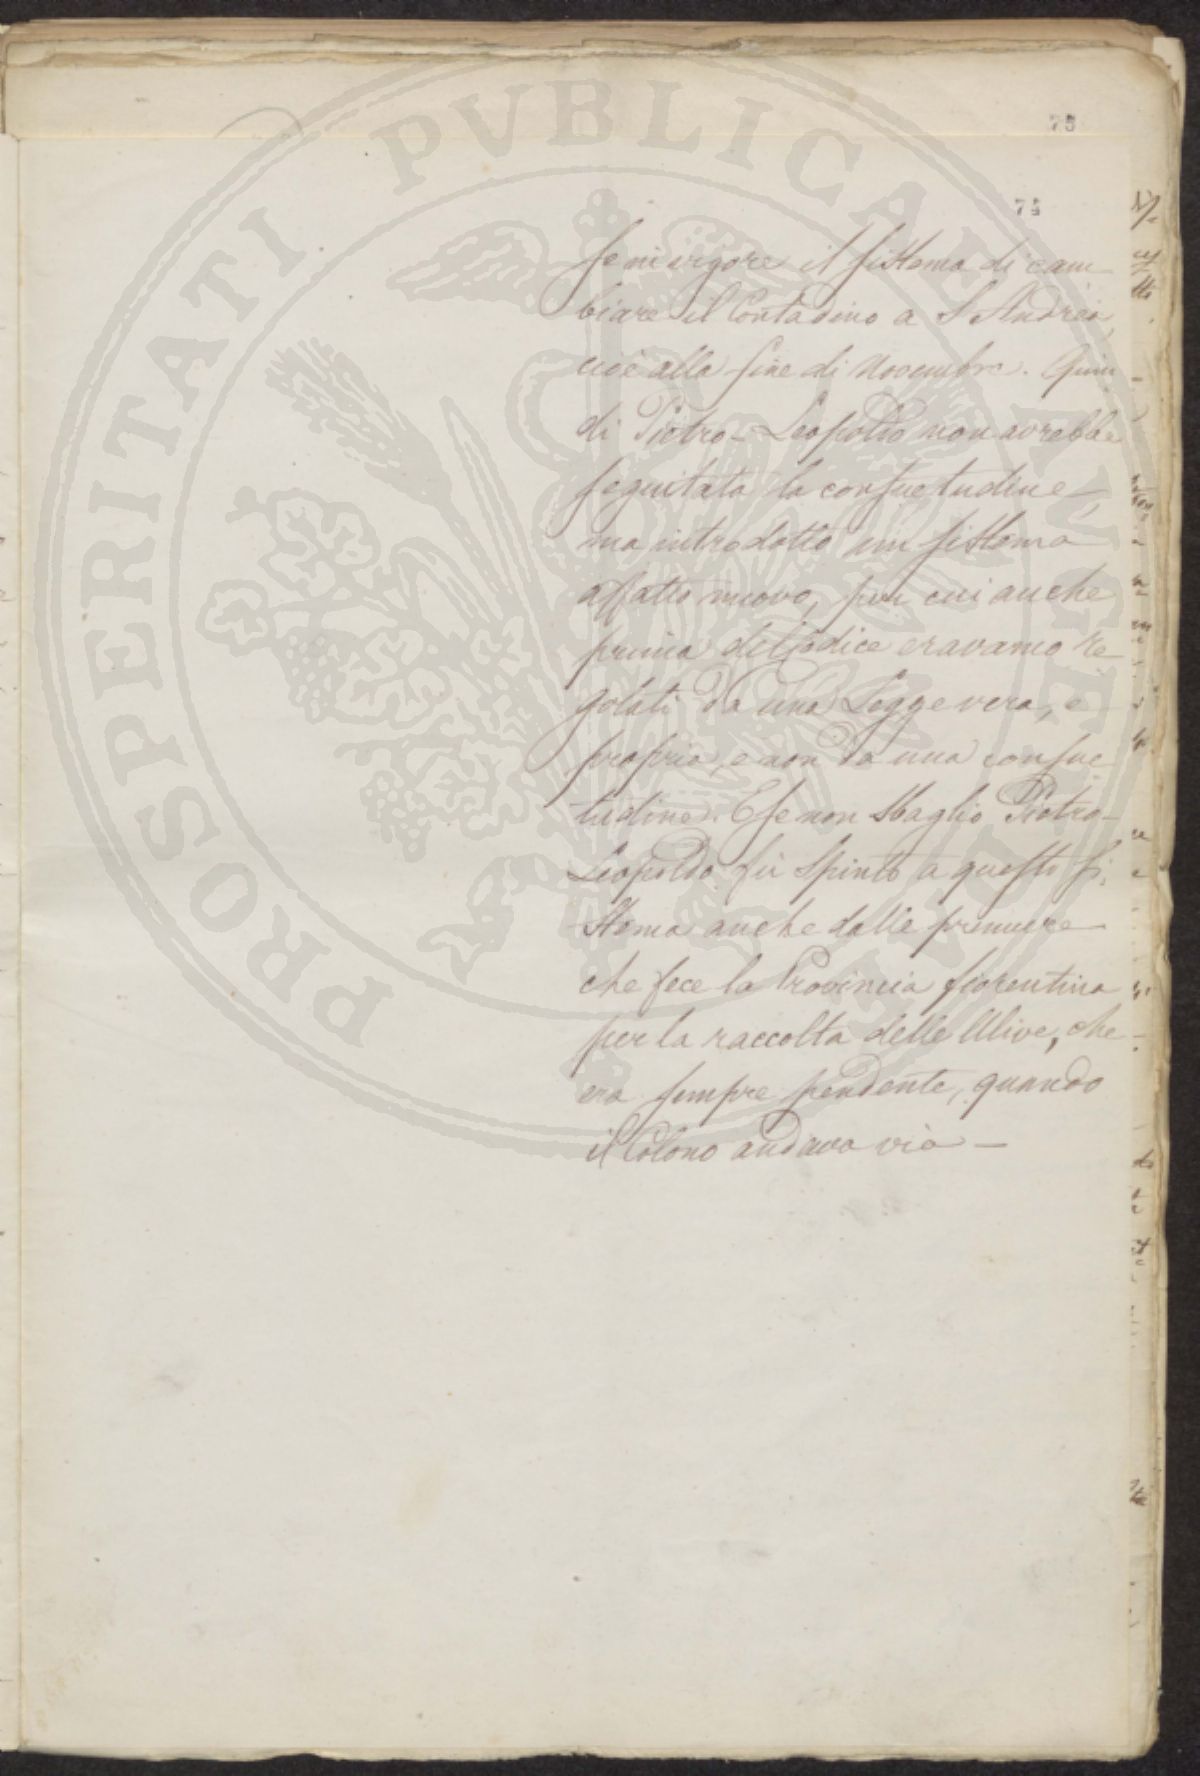 75
74
se in vigore il sistema di cam-
biare il Contadino a S Andrea,
cioè alla fine di Novembre. Quin-
di Pietro-Leopoldo non avrebbe
seguitata la consuetudine -
ma introdotto un sistema
affatto nuovo, per cui anche
prima del Codice eravamo re
golati da una Legge vera, e
propria, e non da una consue
tudine. E se non sbaglio Pietro-
Leopoldo fu spinto a questo si
stema anche dalle premure
che fece la Provincia fiorentina
per la raccolta delle Ulive, che
era sempre pendente, quando
il Colono andava via -
PROSPERITATI PVBLICAE AVGENDAE